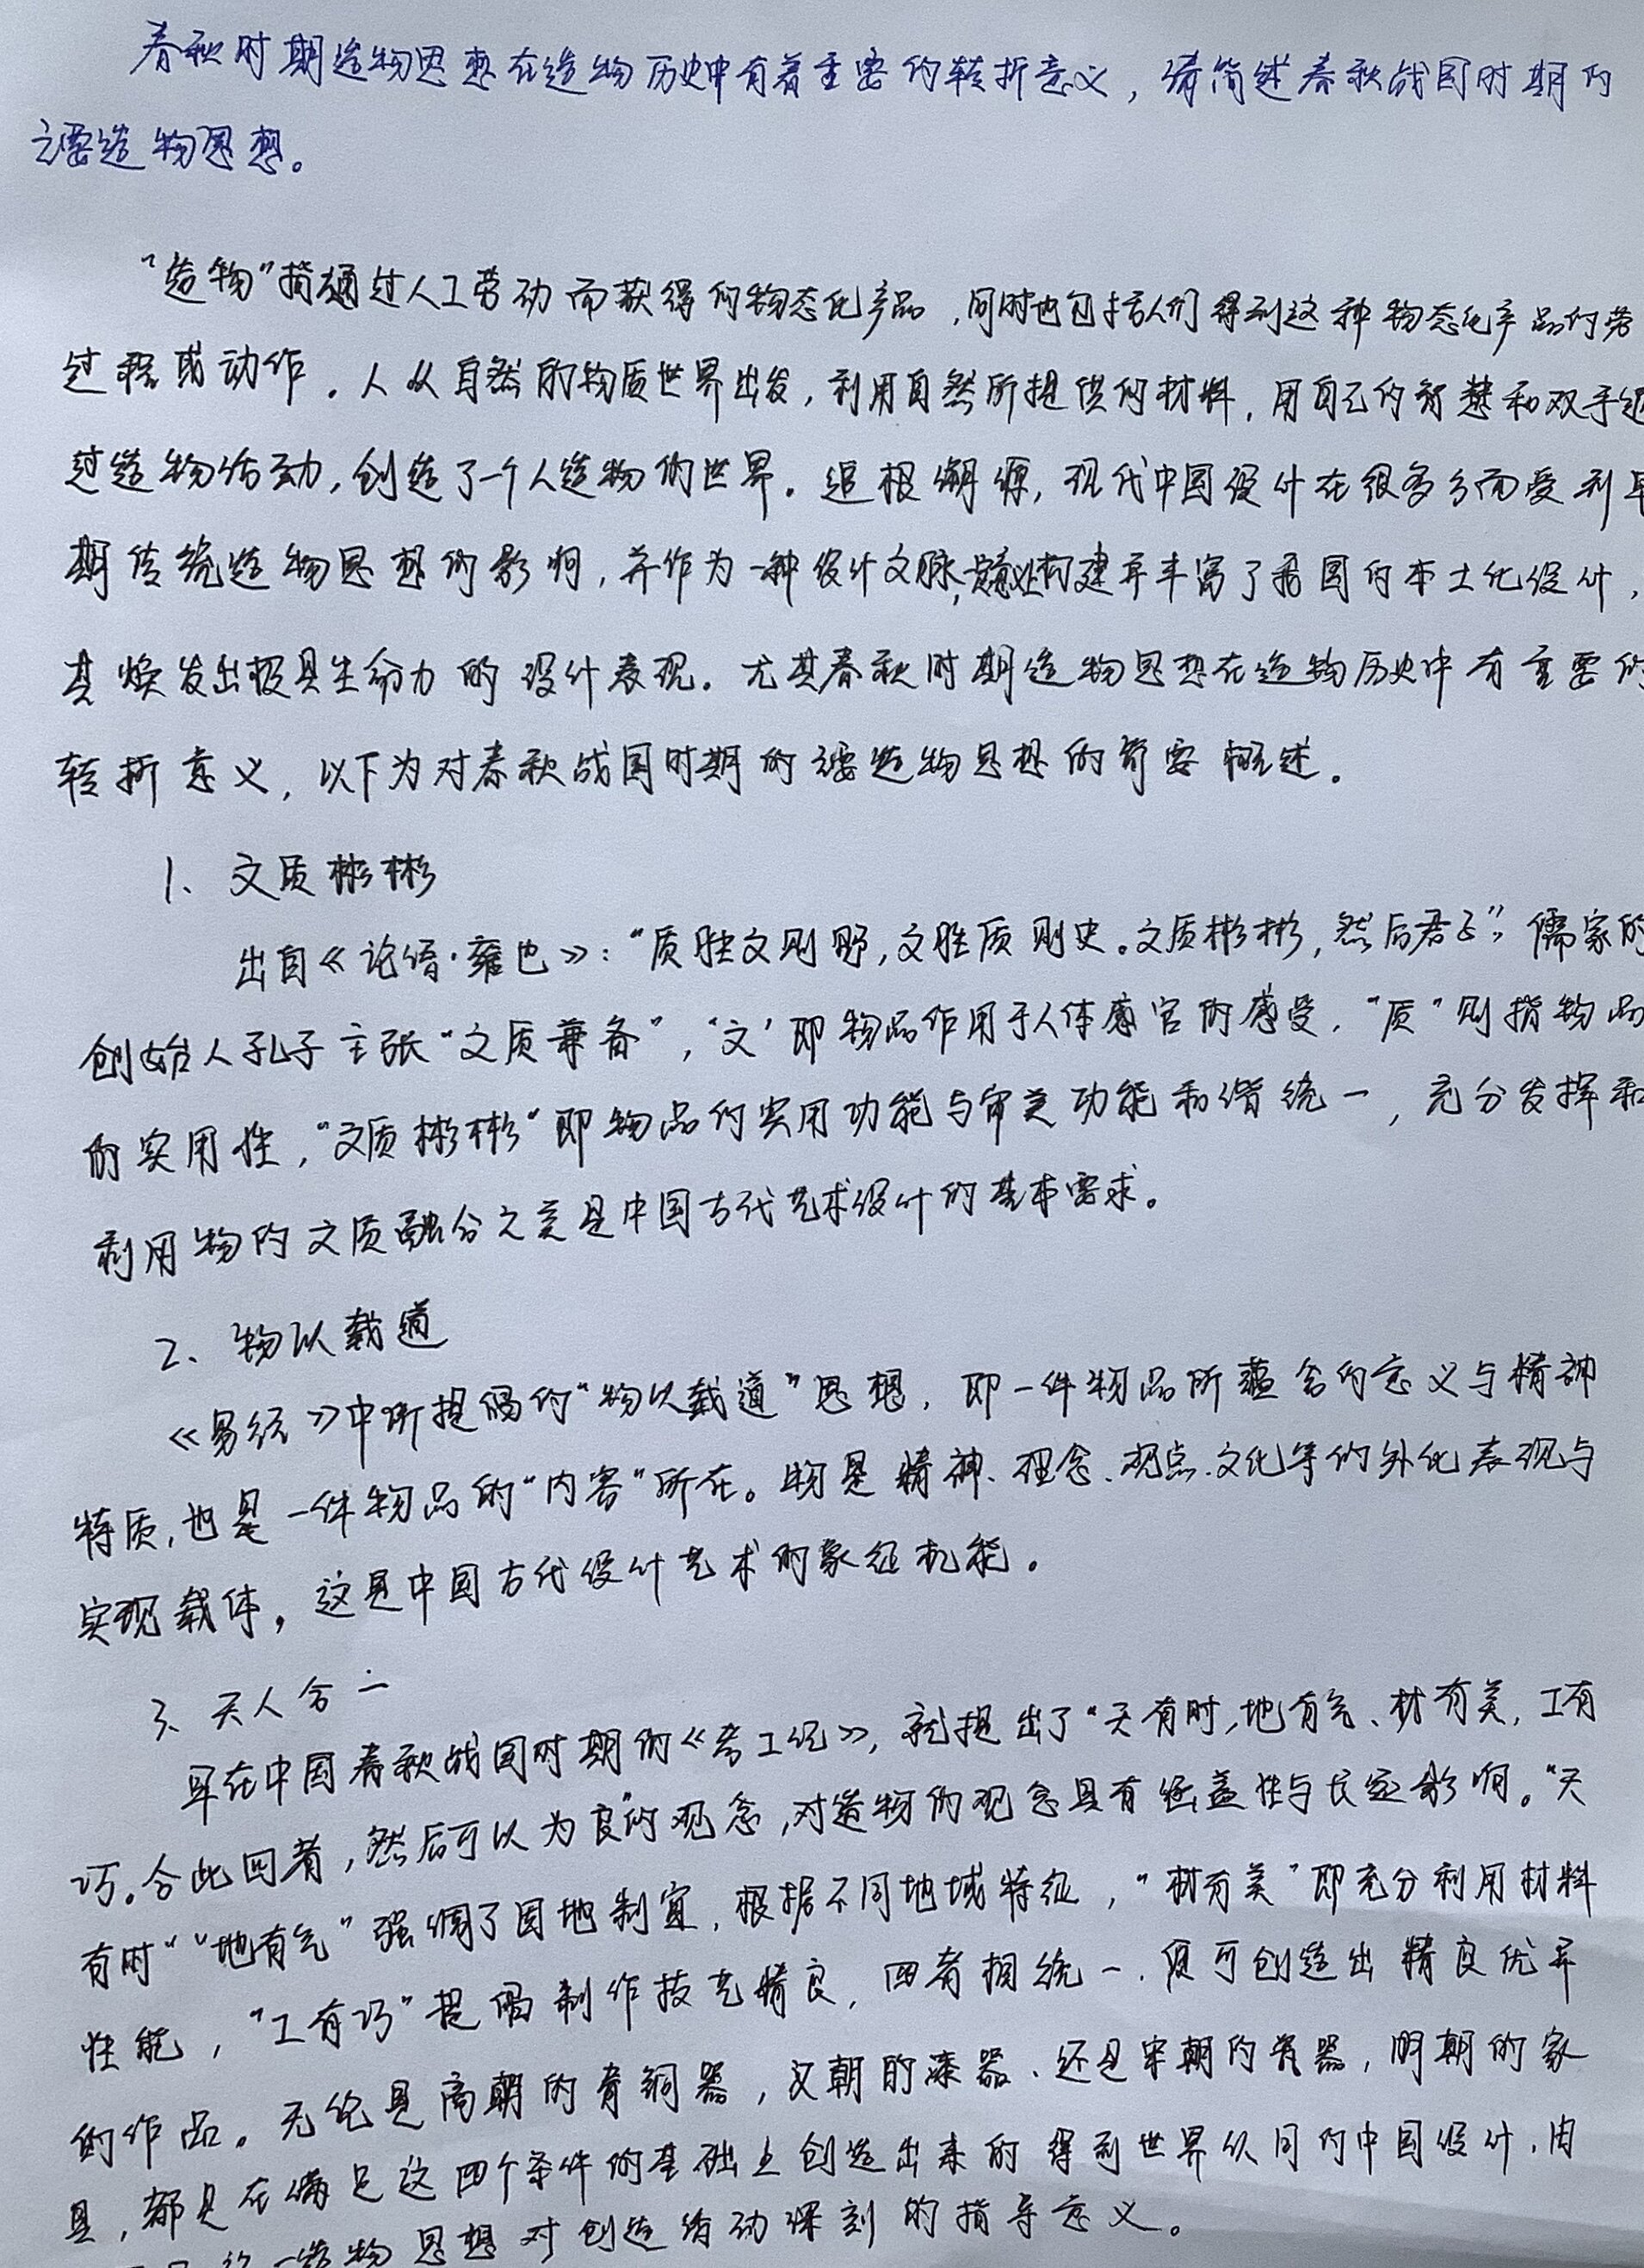 春秋时期造物思想在造物历史中有着重要的转折意义，请简述春秋战国时期的
主要造物思想。
“造物”指通过人工劳动而获得的物态化产品，同时也包括人们得到这种物态化产品的劳
过程或动作。人从自然的物质世界出发，利用自然所提供的材料，用自己的智慧和双手通
过造物活动，创造了一个人造物的世界。追根溯源，现代中国设计在很多方面受到早
期传统造物思想的影响，并作为一种设计文脉，构建并丰富了我国的本土化设计，
其焕发出极具生命力的设计表现。尤其春秋时期造物思想在造物历史中有重要的
转折意义，以下为对春秋战国时期的主要造物思想的简要概述。
1、文质彬彬
出自《论语·雍也》：“质胜文则野，文胜质则史。文质彬彬，然后君子”，儒家的
创始人孔子主张“文质兼备”，‘文’即物品作用于人体感官的感受，“质”则指物品
的实用性，“文质彬彬”即物品的实用功能与审美功能和谐统一，充分发挥和
利用物的文质融合之美是中国古代艺术设计的基本需求。
2、物以载道
《易经》中所提倡的“物以载道”思想，即一件物品所蕴含的意义与精神
特质，也是一件物品的“内容”所在。物是精神、理念、观点、文化等的外化表现与
实现载体，这是中国古代设计艺术的象征机能。
3、天人合一
早在中国春秋战国时期的《考工纪》，就提出了“天有时，地有气、材有美，工有
巧。合此四者，然后可以为良”的观念，对造物的观念具有涵盖性与长远影响。“天
有时”“地有气”强调了因地制宜，根据不同地域特征，“材有美”即充分利用材料
性能，“工有巧”提倡制作技艺精良，四者相统一，便可创造出精良优异
的作品。无论是商朝的青铜器，汉朝的漆器、还是宋朝的瓷器，明朝的家
具，都是在满足这四个条件的基础上创造出来的得到世界认同的中国设计，由
造物思想对创造活动深刻的指导意义。